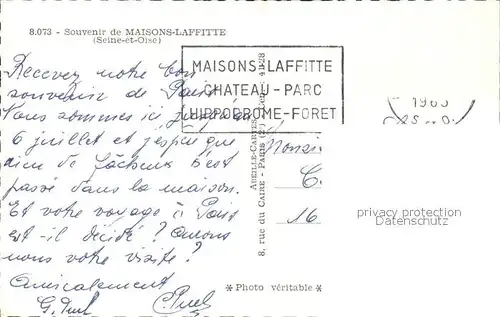 8.073 - Souvenir de MAISONS-LAFFITTE
(Seine-et-Oise)
MAISONS-LAFFITTE
CHATEAU-PARC
HIPPODROME-FORET
Recevez notre bon
souvenir de Paris
Nous sommes ici jusqu'au
6 juillet et j'espère que
rien de fâcheux s'est
passé dans la maison.
Et votre voyage à Paris
est-il décidé? Aurons
nous votre visite?
Amicalement
ABEILLE-CARTES
8, rue du CAIRE - PARIS (2e)
41-28
Monsi
C.
16
privacy protection
Datenschutz
* Photo véritable *